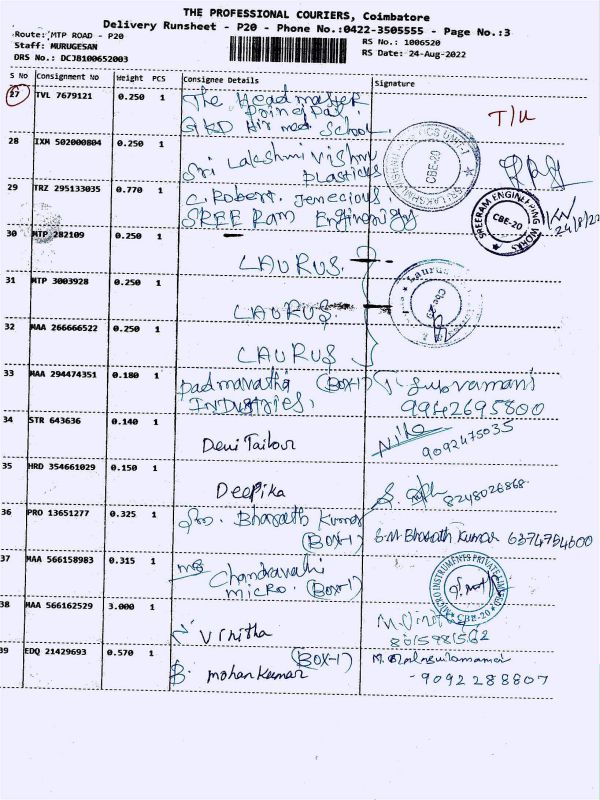 THE PROFESSIONAL COURIERS, Coimbatore
Delivery Runsheet - P20 - Phone No.:0422-3505555 - Page No.:3
Route: MTP ROAD - P20
RS No.: 1006520
Staff: MURUGESAN
RS Date: 24-Aug-2022
DRS No.: DCJB100652003
S No Consignment No Weight PCS Consignee Details Signature
27 TVL 7679121 0.250 1 The Headmaster
School. T/U
28 IXM 502000804 0.250 1 Sri Lakshmi Vishnu
Plastics
CBE-20
29 TRZ 295133035 0.770 1 C. Robert
SREE Ram Engineering
SREERAM ENGINEERING WORKS CBE-20
30 MTP 282109 0.250 1 LAURUS.
31 MTP 3003928 0.250 1 LAURUS.
Laurus
32 MAA 266666522 0.250 1 LAURUS
33 MAA 294474351 0.180 1 Padmavathi (BOX-1)
INDUSTRIES. 9942695800
34 STR 643636 0.140 1 Devi Tailour 9092475035
35 HRD 354661029 0.150 1 Deepika 8248026868
36 PRO 13651277 0.325 1 Bharath Kumar
(BOX-1) S.M Bharath Kumar 6374754600
37 MAA 566158983 0.315 1 Chandravathi
micro. (Box-1)
MICRO INSTRUMENTS PRIVATE CBE-20
38 MAA 566162529 3.000 1 Vinitha
39 EDQ 21429693 0.570 1 (BOX-1)
B. mohan kumar - 9092288807